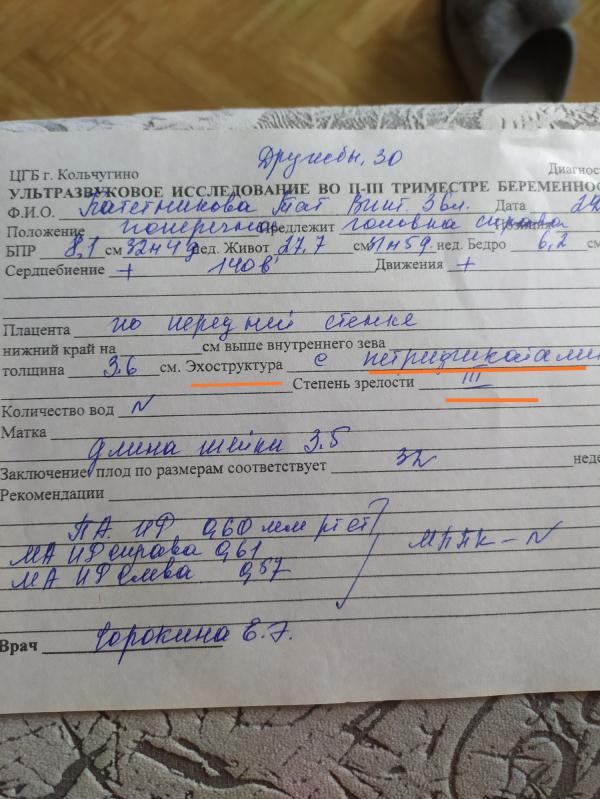 Дружбы, 30
ЦГБ г. Кольчугино Диагнос
УЛЬТРАЗВУКОВОЕ ИССЛЕДОВАНИЕ ВО II-III ТРИМЕСТРЕ БЕРЕМЕННОС
Ф.И.О. Тат Викт Дата
Положение поперечное Предлежит головка справа
БПР 8,1 см 32н4д нед. Живот 27,7 см 31н5д. нед. Бедро 6,2 см
Сердцебиение + 140 в' Движения +
Плацента по передней стенке
нижний край на см выше внутреннего зева
толщина 3.6 см. Эхоструктура с петрификатами
Степень зрелости III
Количество вод N
Матка
длина шейки 3.5
Заключение плод по размерам соответствует 32 неде
Рекомендации
ПА. ИР 0,60 мм рт ст
МА ИР справа 0,61 МППК - N
МА ИР слева 0,57
Врач Сорокина Е.